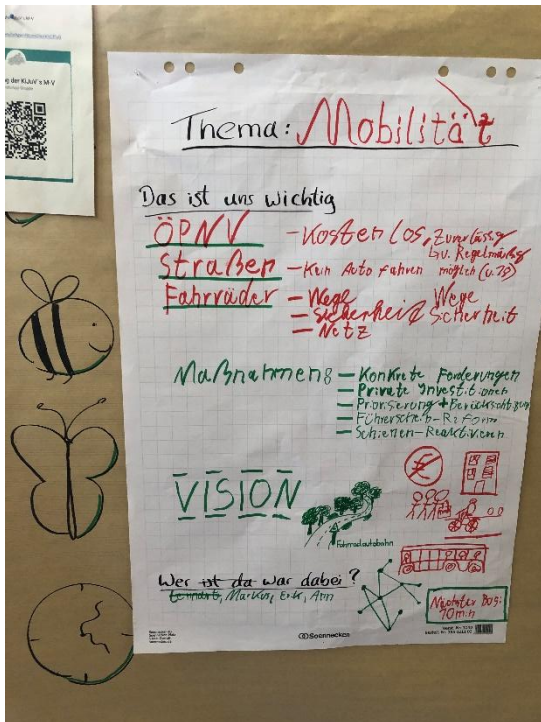 ng der KiJuV's M-V
Thema: Mobilität
Das ist uns wichtig
ÖPNV - Kostenlos, zuverlässig
u. Regelmäßig
Straßen - Kein Auto fahren möglich (u. 18)
Fahrräder - Wege Wege
- Sicherheit Sicherheit
- Netz
Maßnahmen: - Konkrete Forderungen
- Private Investitionen
- Priorisierung + Berücksichtigung
- Führerschein-Reform
- Schienen-Reaktivieren
VISION
Fahrradautobahn
Wer ist da war dabei?
Lennart, Markus, Erik, Ann
Nächster Bus:
10min
Soennecken